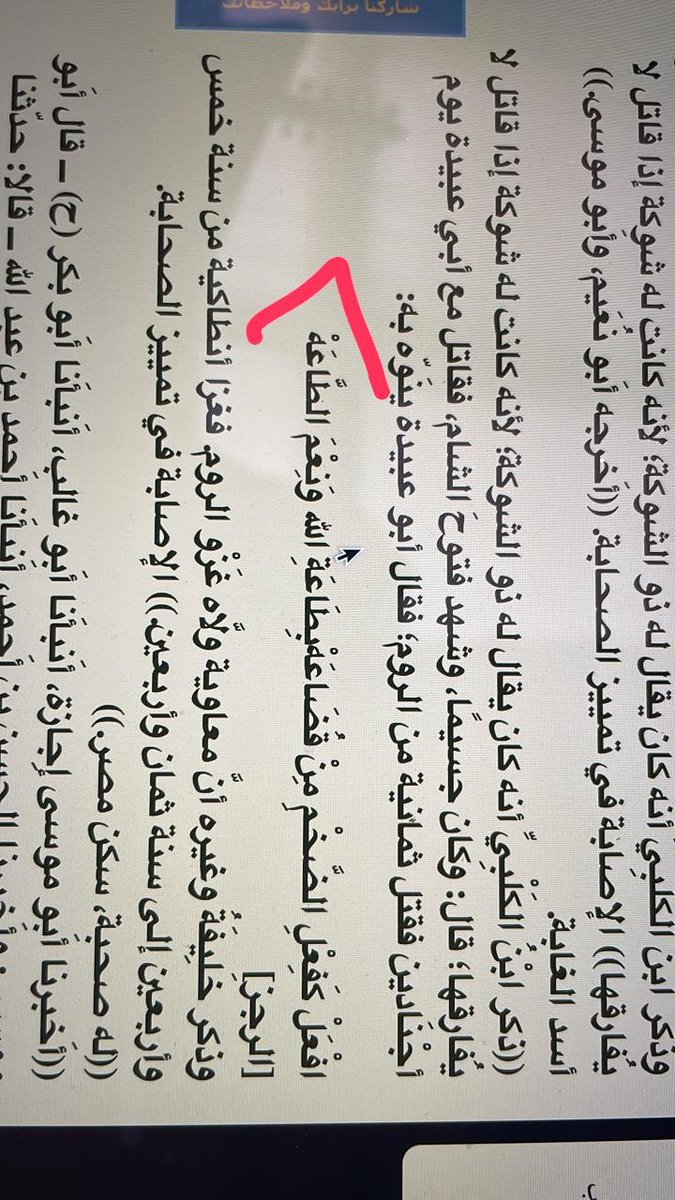 شاركنا برأيك وملاحظاتك
وذكر ابن الكلبِيّ أنه كان يقال له ذو الشوكة؛ لأنه كانتْ له شوكة إذا قاتل لا
يُفارقها)) الإصابة في تمييز الصحابة. ((أَخرجه أَبو نُعَيم، وأبو موسى.))
أسد الغابة.
((ذكر ابْنُ الكَلْبِيِّ أنه كان يقال له ذو الشوكة؛ لأنه كانت له شوكة إذا قاتل لا
يُفارقها؛ قال: وكان جسيمًا، وشهد فتوحَ الشام، فقاتل مع أبي عبيدة يوم
أجْنَادين فقتل ثمانية من الروم؛ فقال أبو عبيدة ينَوّه به:
افْعَلْ كَفِعْلِ الضَّخْمِ مِنْ قُضَاعَهْبِطَاعَةِ الله وَنِعْمَ الطَّاعَهْ
[الرجز]
وذكر خَلِيفَةُ وغيره أنَّ معاوية ولّاه غَزْو الروم. فغزا أنطاكية من سنة خمس
وأربعين إلى سنة ثمان وأربعين.)) الإصابة في تمييز الصحابة.
((له صحبة، سكن مصر.))
((أَخبرنا أَبو موسى إِجازة، أَنبأَنا أَبو غالب، أَنبأَنا أَبو بكر (ح) ـ قال أَبو
أَحمد، أَنبأَنا أَحمد بن عبد الله ـ قالا: حدّثنا